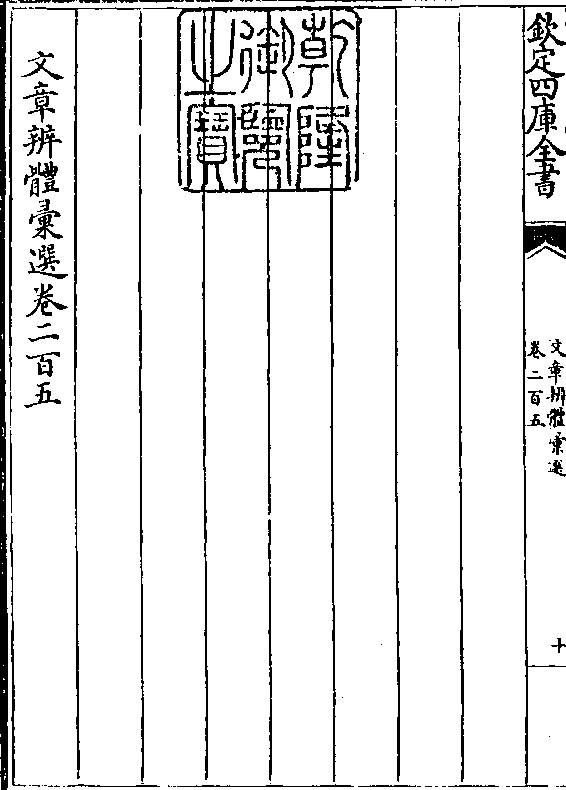 欽定四庫全書
文章辨體彙選
卷二百五
十
乾隆
御覽
之寶
文章辨體彙選卷二百五